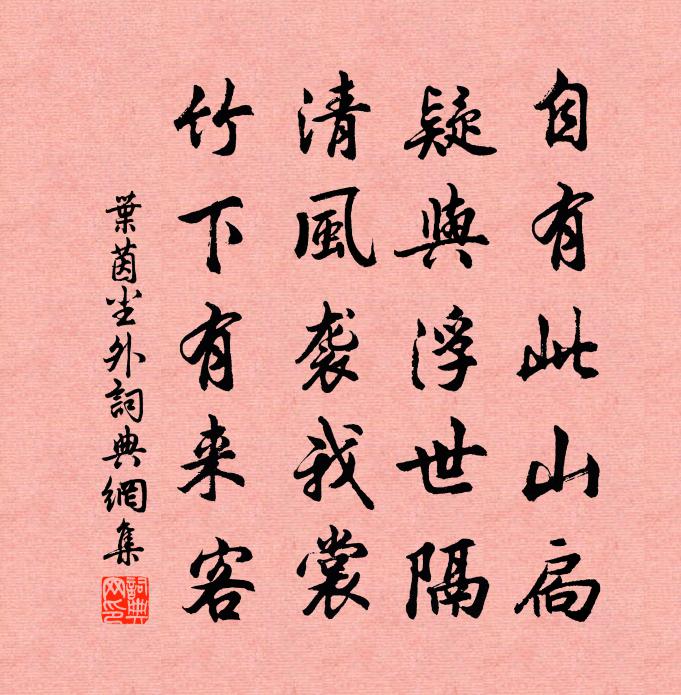 自有此山扃
疑與浮世隔
清風袭我裳
竹下有来客
葉茵尘外詞典網集
詞典
网印